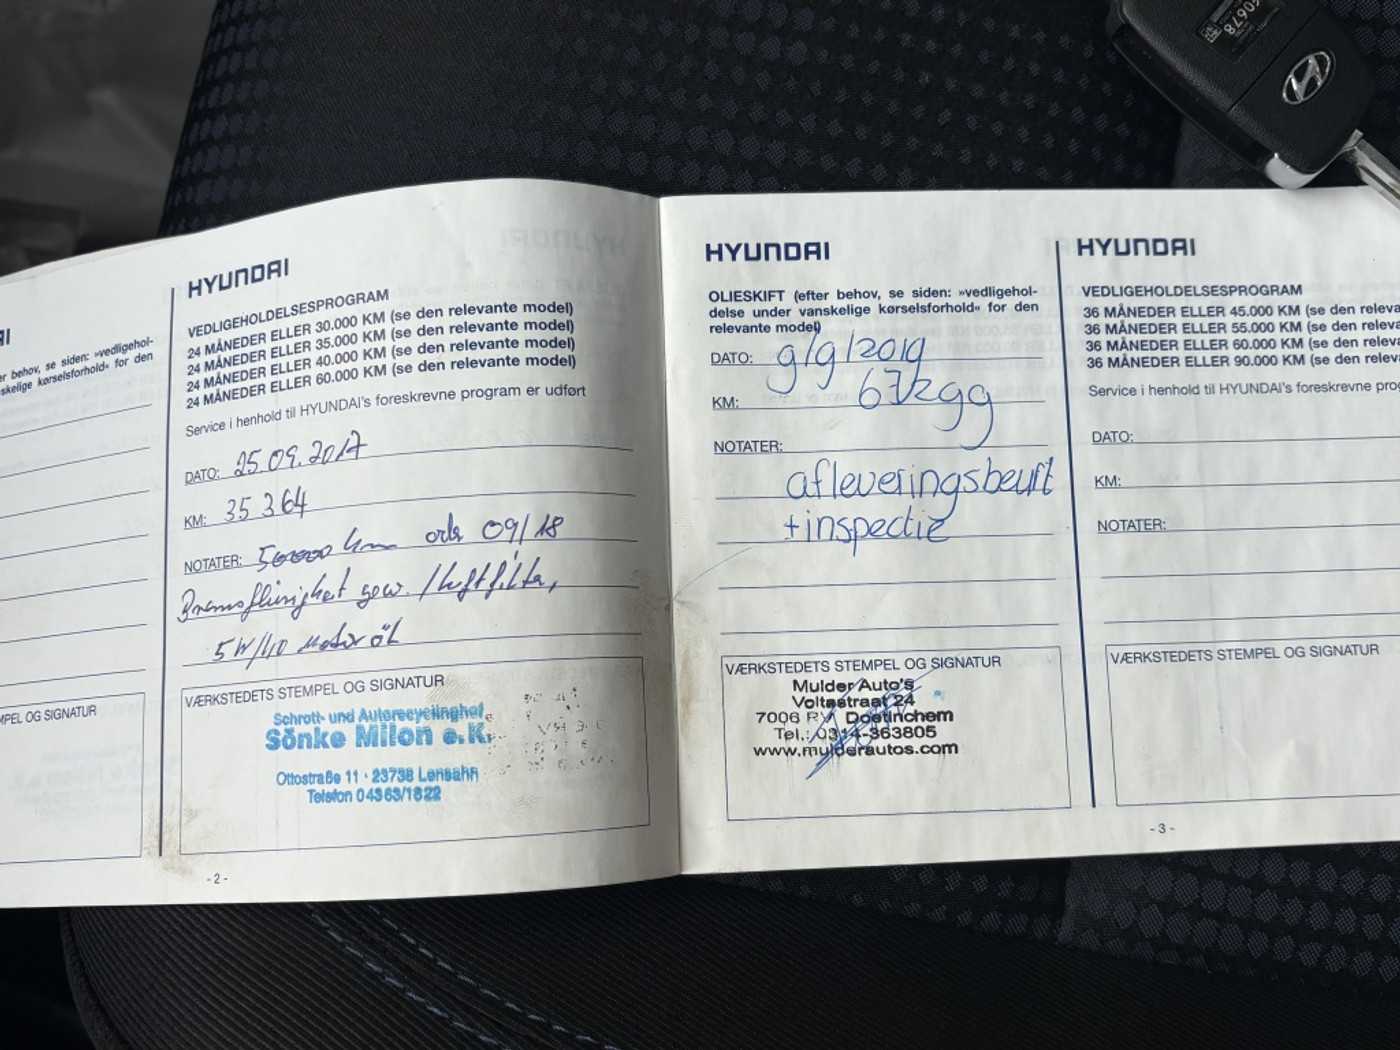 er behov, se siden: »vedligehol-
skelige kørselsforhold« for den
MPEL OG SIGNATUR
HYUNDAI
VEDLIGEHOLDELSESPROGRAM
24 MÅNEDER ELLER 30.000 KM (se den relevante model)
24 MÅNEDER ELLER 35.000 KM (se den relevante model)
24 MÅNEDER ELLER 40.000 KM (se den relevante model)
24 MÅNEDER ELLER 60.000 KM (se den relevante model)
Service i henhold til HYUNDAI's foreskrevne program er udført
DATO: 25.09.2017
KM: 35 364
NOTATER: 50000 km oder 09/18
Bremsflüssigkeit gew. / Luftfilter,
5W/40 Motoröl
VÆRKSTEDETS STEMPEL OG SIGNATUR
Schrott- und Autorecyclinghof
Sönke Milon e.K.
Ottostraße 11 · 23738 Lensahn
Telefon 04363/1822
- 2 -
HYUNDAI
OLIESKIFT (efter behov, se siden: »vedligehol-
delse under vanskelige kørselsforhold« for den
relevante model)
DATO: 9/9/2019
KM: 67299
NOTATER:
afleveringsbeurt
+inspectie
VÆRKSTEDETS STEMPEL OG SIGNATUR
Mulder Auto's
Voltastraat 24
7006 RV Doetinchem
Tel.: 0314-363805
www.mulderautos.com
HYUNDAI
VEDLIGEHOLDELSESPROGRAM
36 MÅNEDER ELLER 45.000 KM (se den releva
36 MÅNEDER ELLER 55.000 KM (se den releva
36 MÅNEDER ELLER 60.000 KM (se den releva
36 MÅNEDER ELLER 90.000 KM (se den releva
Service i henhold til HYUNDAI's foreskrevne prog
DATO:
KM:
NOTATER:
VÆRKSTEDETS STEMPEL OG SIGNATUR
- 3 -